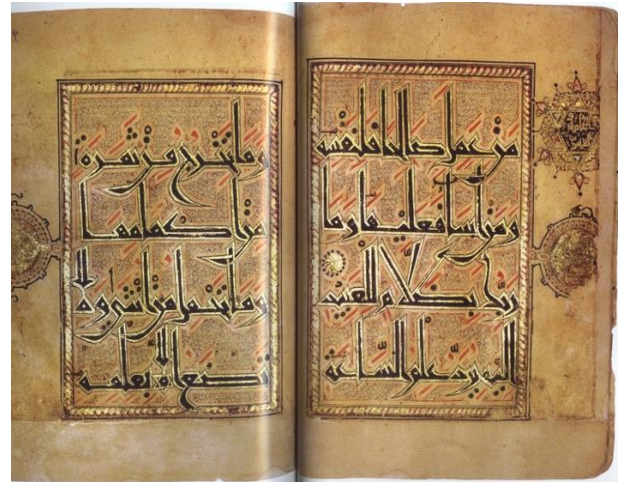 من عمل صالحا فلنفسه
ومن أسا فعليها وما
ربك بظلام للعبيد
إليه يرد علم الساعة
وما تخرج من ثمرة
من أكمامها
وما تحمل من أنثى ولا
تضع إلا بعلمه